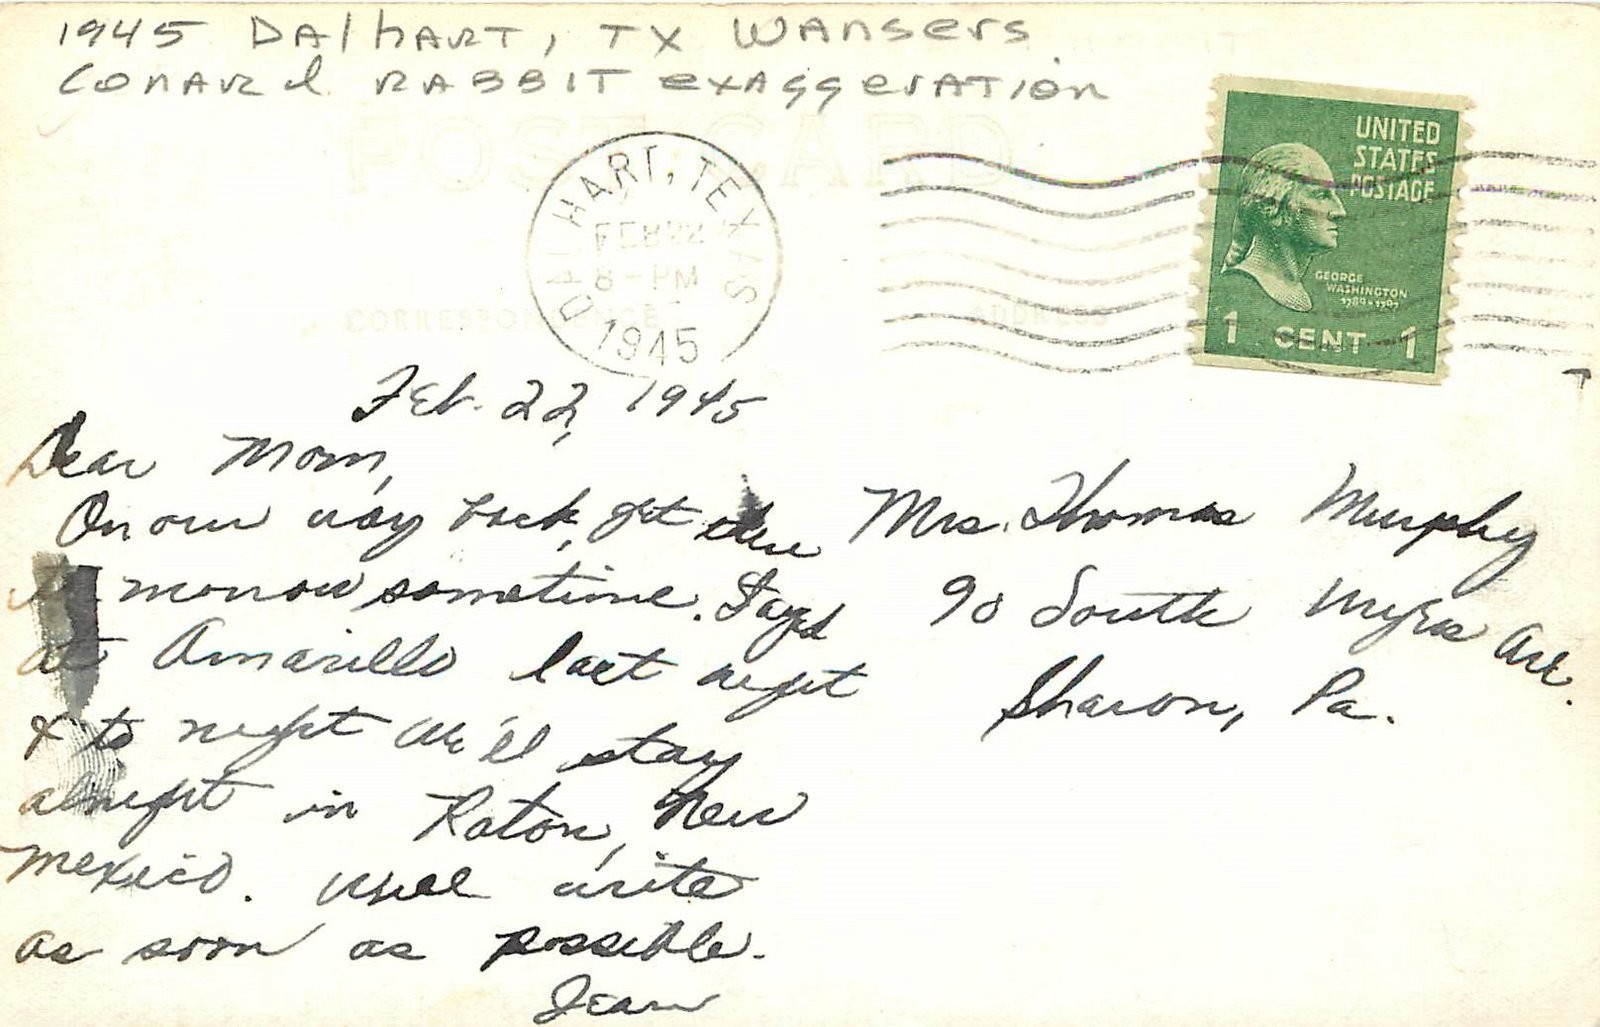 1945 DAlhART, TX WANSerS
CONARd RABBIT exAggerATion
POST CARD
DALHART, TEXAS
FEB 22
8 - PM
1945
UNITED
STATES
POSTAGE
GEORGE
WASHINGTON
1789-1797
1 CENT 1
CORRESPONDENCE
ADDRESS
Feb. 22, 1945
Dear Mom,
On our way back, get there
to morrow sometime. Stayed
at Amarillo last night
& to night we'll stay
alnight in Raton, New
Mexico. Will write
as soon as possible.
Jean
Mrs. Thomas Murphy
90 South Myers Ave.
Sharon, Pa.